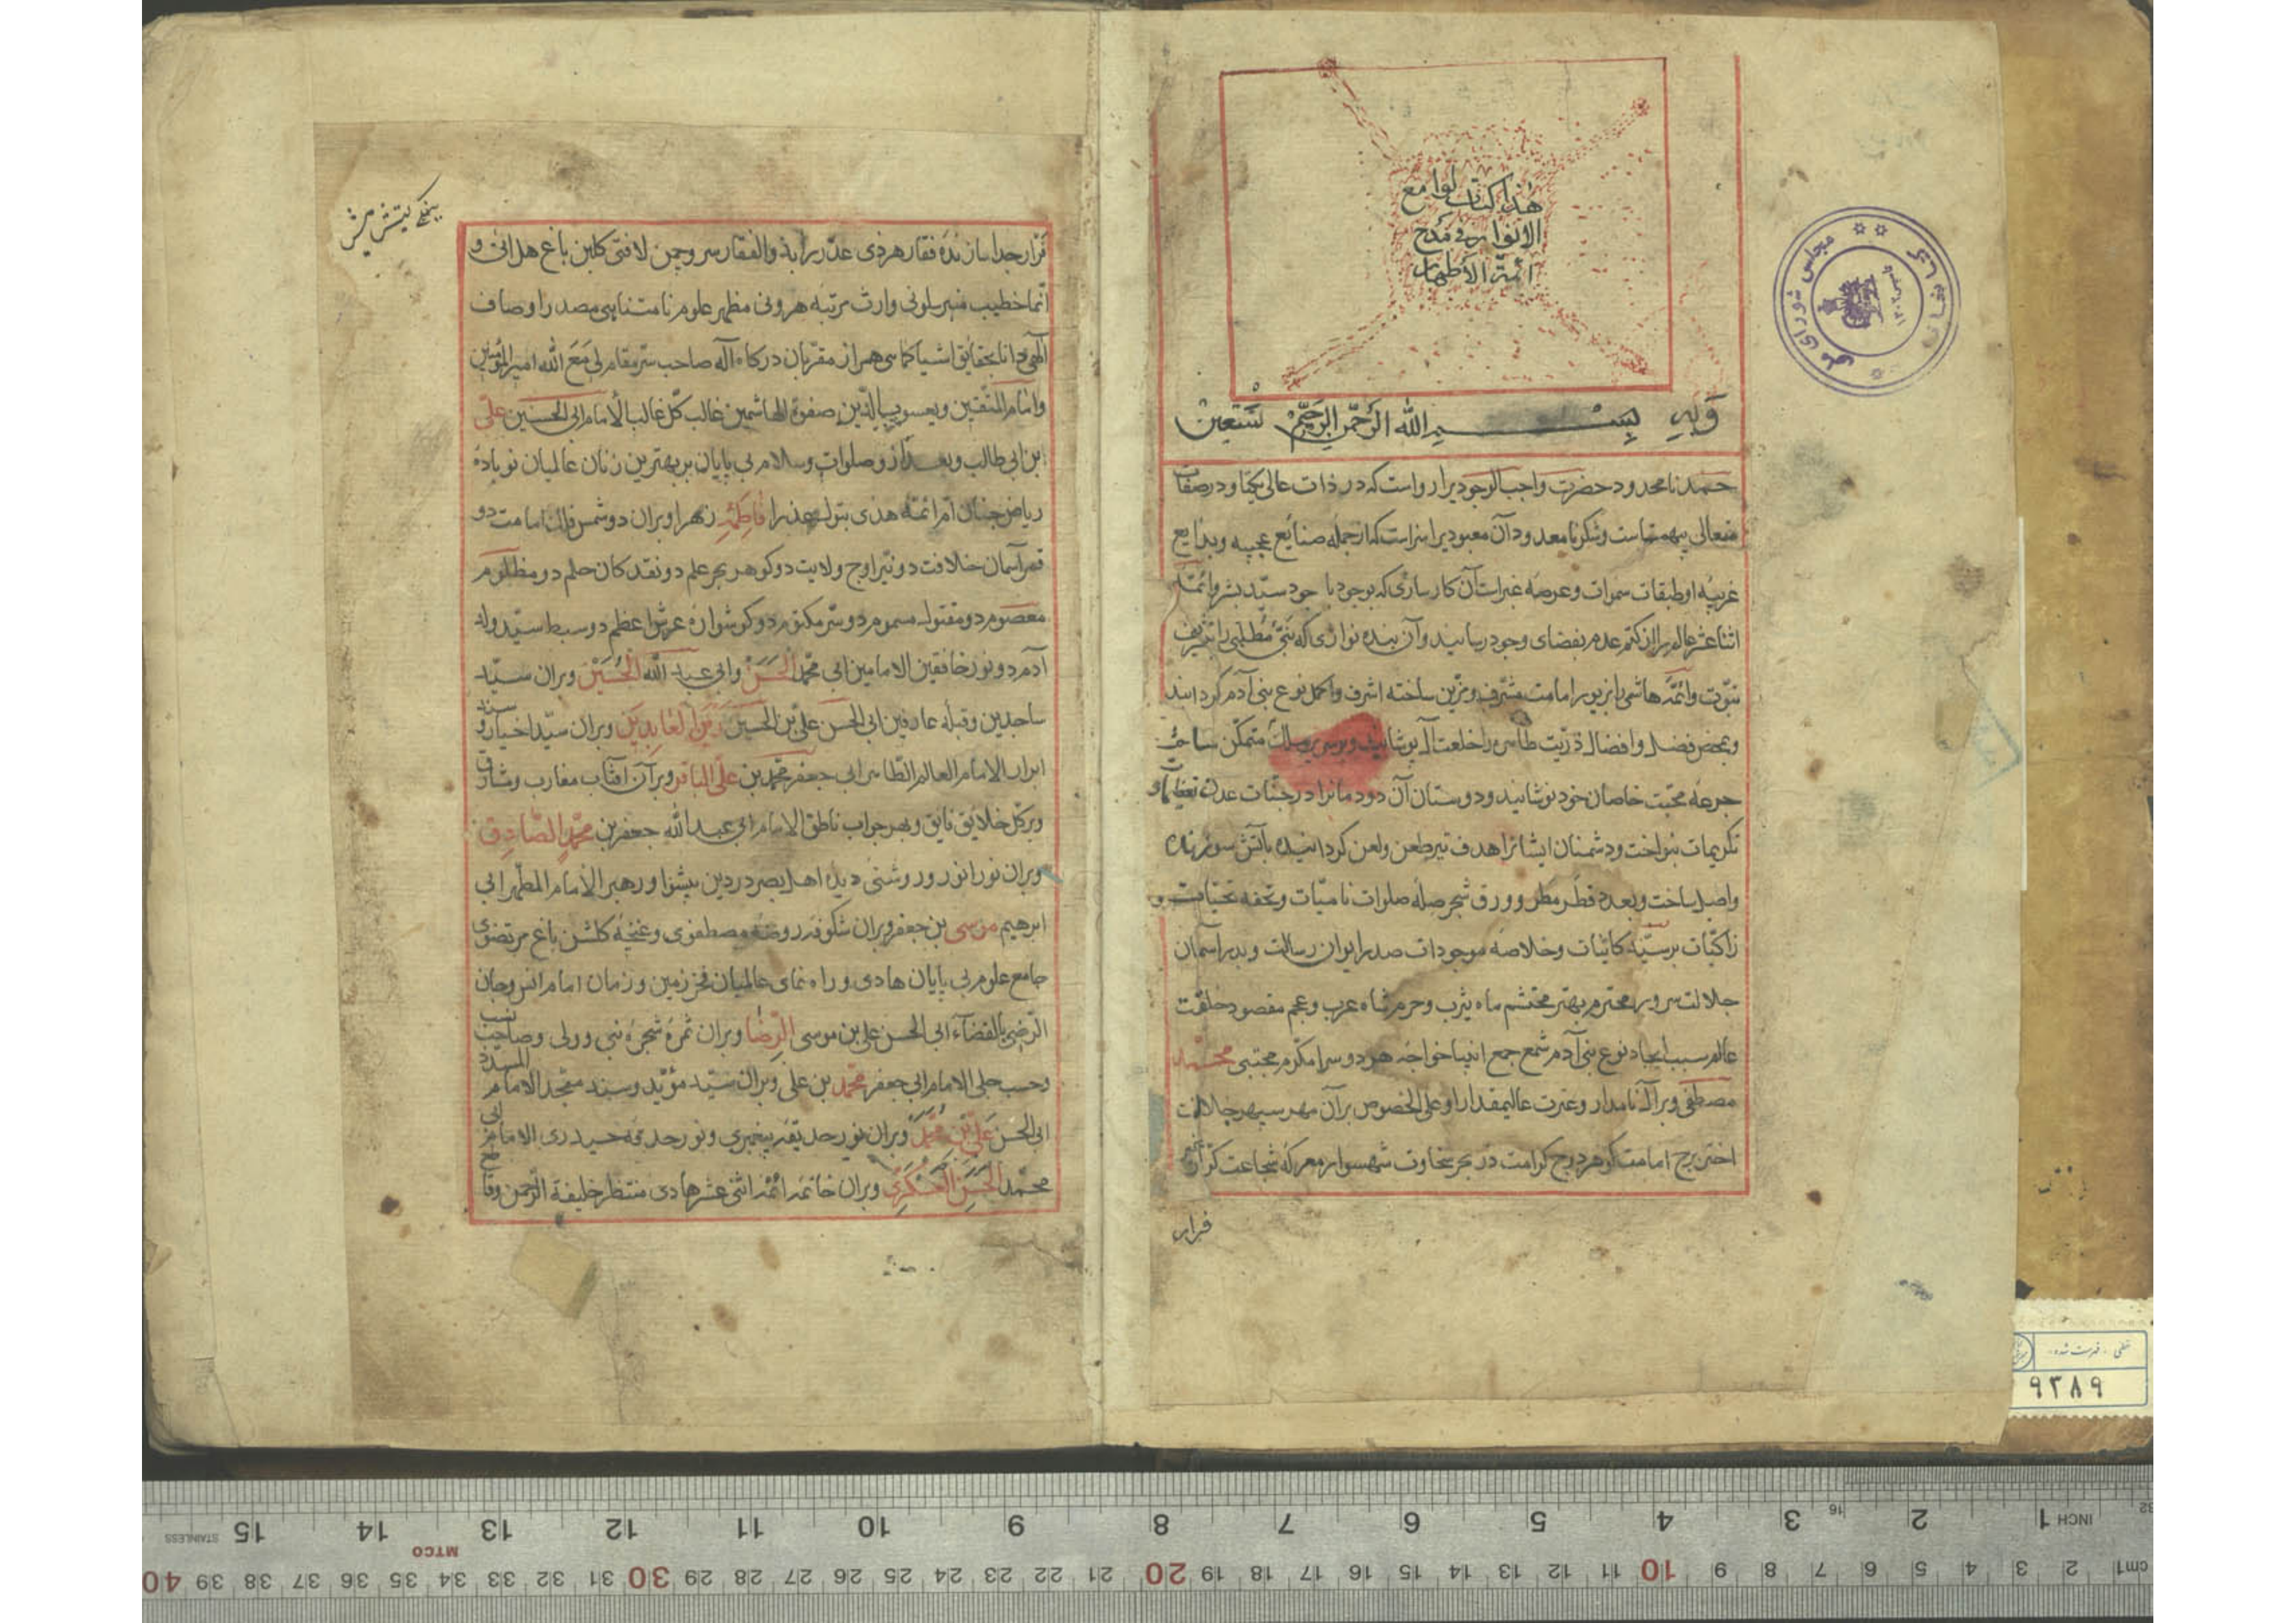 هذا كتاب لوامع
الانوار في مدح
ائمّة الاطهار
وبه بسم الله الرحمن الرحيم نستعين
حمد نامحدود حضرت واجب الوجودیرا رواست که در ذات عالی یکتا و در صفات
متعالی بیهمتاست وشکر نامعدود آن معبودیرا سزاست که از جمله صنایع عجیبه وبدایع
غریبه او طبقات سموات وعرصه غبراست آن کارسازی که بوجود با جود سیّد بشر وائمّه
اثنا عشر عالم را از کتم عدم بفضای وجود رسانید وآن بنده نوازی که نبیّ مطّلبی را بتشریف
نبوّت وائمّه هاشمی را بزیور امامت مشرّف ومزیّن ساخته اشرف واکمل نوع بنی آدم کردانید
وبمحض فضل وافضال ذرّیت طاهره را خلعت آل پوشانید وبر سریر متمکّن ساخت
جرعه محبّت خاصان خود نوشانید ودوستان آن دودمانرا در جنّات عدن تعظیما و
تکریمات بنواخت ودشمنان ایشانرا هدف تیر طعن ولعن کردانیده بآتش سوزنده
واصل ساخت وبعدد قطر مطر وورق شجر صله صلوات نامیّات وتحفه تحیّات و
زاکیّات بر سیّد کائنات وخلاصه موجودات صدر ایوان رسالت وبدر آسمان
جلالت سرور محترم مهتر محتشم ماه یثرب وحرم شاه عرب وعجم مقصود خلقت
عالم سبب ایجاد نوع بنی آدم شمع جمع انبیا خواجه هر دو سرا مکرّم مجتبی محمّد
مصطفی وبر آل نامدار وعترت عالیمقدار او علی الخصوص بر آن مهر سپهر جلالت
اختر برج امامت کوهر درج کرامت درّ بحر سخاوت شهسوار معرکه شجاعت کرّار
فرار
کرّار جدا سازنده فقار هر ذی غدر بذوالفقار سرو چمن لافتی کلبن باغ هل اتی و
انّما خطیب منبر سلونی وارث مرتبه هرونی مظهر علوم نامتناهی مصدر اوصاف
آلهی دانا بحقایق اشیا کماهی همراز مقرّبان درکاه آله صاحب سرّ مقام لی مع الله امیر المؤمنین
وامام المتّقین ویعسوب الدّین صفوة الهاشمین غالب کلّ غالب الامام ابی الحسین علی
بن ابی طالب وبعد از وصلوات وسلام بی پایان بر بهترین زنان عالمیان نوباده
ریاض جنان امّ ائمّه هدی بتول عذرا فاطمه زهرا وبران دو شمس فلک امامت دو
قمر آسمان خلافت دو نیّر اوج ولایت دو کوهر بحر علم دو نقد کان حلم دو مظلوم
معصوم دو مقتول مسموم دو سرّ مکتوم دو کوشواره عرش اعظم دو سبط سیّد ولد
آدم دو نور خافقین الامامین ابی محمّد الحسن وابی عبد الله الحسین وبران سیّد
ساجدین وقبله عارفین ابی الحسن علی بن الحسین زین العابدین وبران سیّد اخیار و سند
ابرار الامام العالم الطّاهر ابی جعفر محمّد بن علی الباقر وبر آن افتاب مغارب ومشارق
وبر کلّ خلایق فایق وبهر جواب ناطق الامام ابی عبد الله جعفر بن محمّد الصّادق
وبران نور انور وروشنی دیده اهل بصر در دین پیشوا ورهبر الامام المطهّر ابی
ابرهیم موسی بن جعفر وبران شکوفه روضه مصطفوی وغنچه کلشن باغ مرتضوی
جامع علوم بی پایان هادی وراه نمای عالمیان فخر زمین وزمان امام انس وجان
الرّضی بالقضآء ابی الحسن علی بن موسی الرضا وبران ثمره شجره نبی وولی وصاحب نسب
وحسب جلی الامام ابی جعفر محمّد بن علی وبران سیّد مؤیّد وسند ممجّد الامام المسدّد
ابی الحسن علی بن محمّد وبران نور حدیقه پیغمبری ونور حدقه حیدری الامام ابی
محمّد الحسن العسکری وبران خاتمه ائمّه اثنی عشر هادی منتظر خلیفة الرّحمن
مجلس شورای ملی
خطی - فهرست شده
۹۳۸۹
1 INCH 2 3 4 5 6 7 8 9 10 11 12 13 14 15 STAINLESS
MTCO
cm1 2 3 4 5 6 7 8 9 10 11 12 13 14 15 16 17 18 19 20 21 22 23 24 25 26 27 28 29 30 31 32 33 34 35 36 37 38 39 40